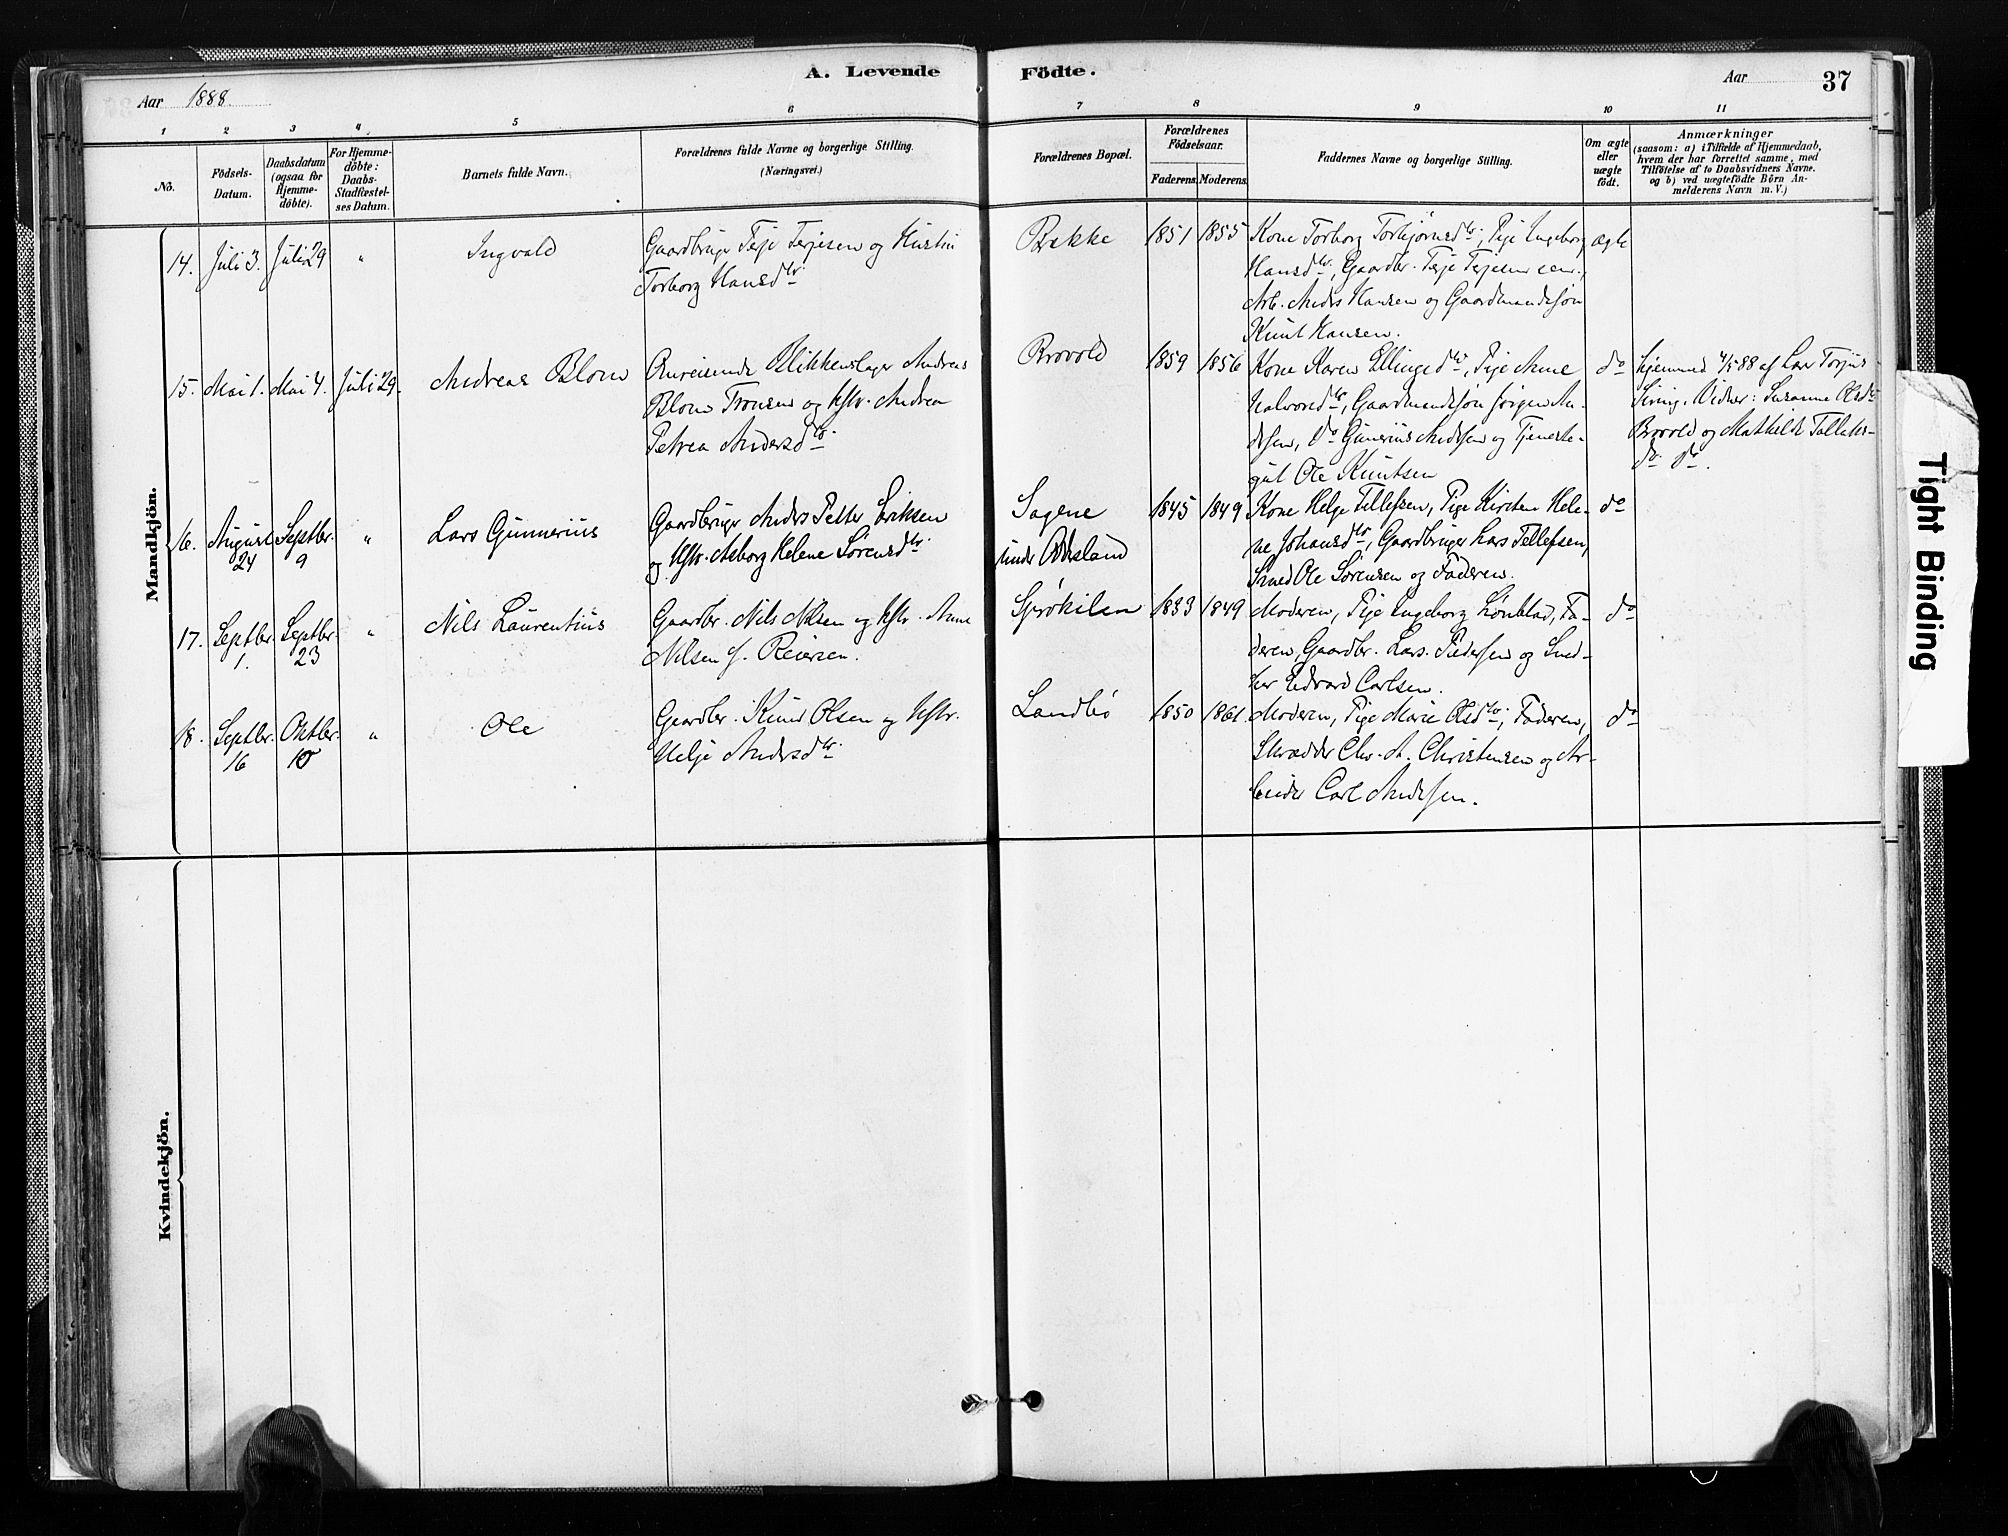 A. Levende Födte.
Aar 1888.
Aar 37
1 2 3 4 5 6 7 8 9 10 11
No.
Födsels-
Datum.
Daabsdatum
(ogsaa for
Hjemme-
döbte).
For Hjemme-
döbte:
Daabs-
Stadfæstel-
ses Datum.
Barnets fulde Navn.
Forældrenes fulde Navne og borgerlige Stilling.
(Næringsvei.)
Forældrenes Bopæl.
Forældrenes
Födselsaar.
Faderens. Moderens.
Faddernes Navne og borgerlige Stilling.
Om ægte
eller
uægte
födt.
Anmærkninger
(saasom: a) i Tilfælde af Hjemmedaab,
hvem der har forrettet samme, med
Tilföielse af to Daabsvidners Navne.
og b) ved uægtefödte Börn An-
melderens Navn m. V.)
Mandkjön.
14. Juli 3. Juli 29 " Ingvald
Gaardbruger Terje Terjesen og Hustru
Torborg Hansdtr.
Bakke 1851 1855
Kone Torborg Torbjørnsdtr., Pige Ingeborg
Hansdtr., Gaardbr. Terje Terjesen sen.,
Arb. Anders Hansen og Gaardmandssøn
Knut Hansen.
ægte
15. Mai 1. Mai 4. Juli 29. Andreas Blom
Omreisende Blikkenslager Andreas
Blom Tronsen og Hstr. Andrea
Petrea Andersdtr.
Brovold 1859 1856
Kone Karen Ellingsdtr., Pige Anne
Halvorsdtr., Gaardmandssøn Jørgen An-
dersen, do Gunerius Andersen og Tjeneste-
gut Ole Knutsen
do
hjemmed 4/5 88 af Lars Torjus
Vidner: Susanne Olsdtr
Brovold og Mathilde Tallaks-
dtr. do.
16. August
24
Septbr.
9
" Lars Gunnerius
Gaardbruger Anders Petter Eriksen
og Hstr. Asborg Helene Sørensdtr.
Sagene
under
1845 1849
Kone Helge Tellefsen, Pige Kirsten Hele-
ne Johansdtr, Gaardbruger Lars Tellefsen,
Smed Ole Sørensen og Faderen.
do
17. Septbr.
1.
Septbr.
23
" Nils Laurentius
Gaardbr. Nils Nilsen og Hstr. Anne
Nilsen f. Reiersen.
Sprøkilen 1833 1849
Moderen, Pige Ingeborg Lönblad, Fa-
deren, Gaardbr. Lars Pedersen og Sned-
ker Edvard Carlsen.
do
18. Septbr.
16
Oktbr.
10
" Ole
Gaardbr. Knud Olsen og Hstr.
Helje Andersdtr.
Landbö 1850 1861.
Moderen, Pige Marie Olsdtr., Faderen,
Skrædder Chr. A. Christensen og Ar-
beider Carl Andersen.
do
Kvindekjön.
Tight Binding